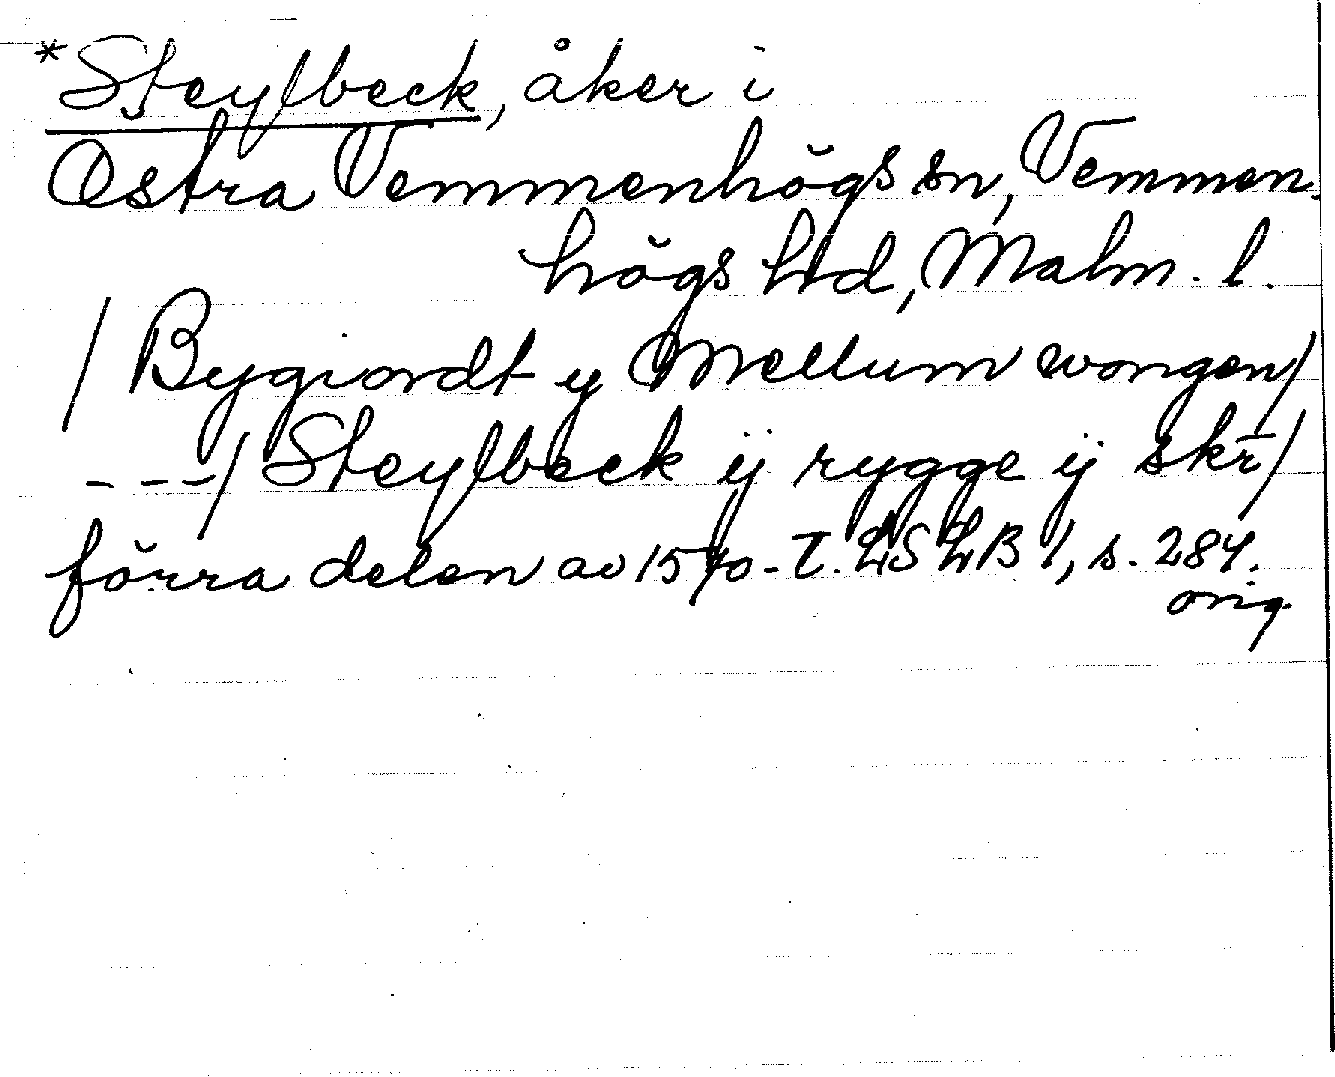 *Steylbeck, åker i
Östra Vemmenhögs sn, Vemmen-
högs hd, Malm. l.
/ Bygiordt y Mellum wongen/
---/ Steylbeck ÿ rygge ÿ skr̄/
förra delen av 1570-t. LSLB 1, s. 284.
orig.